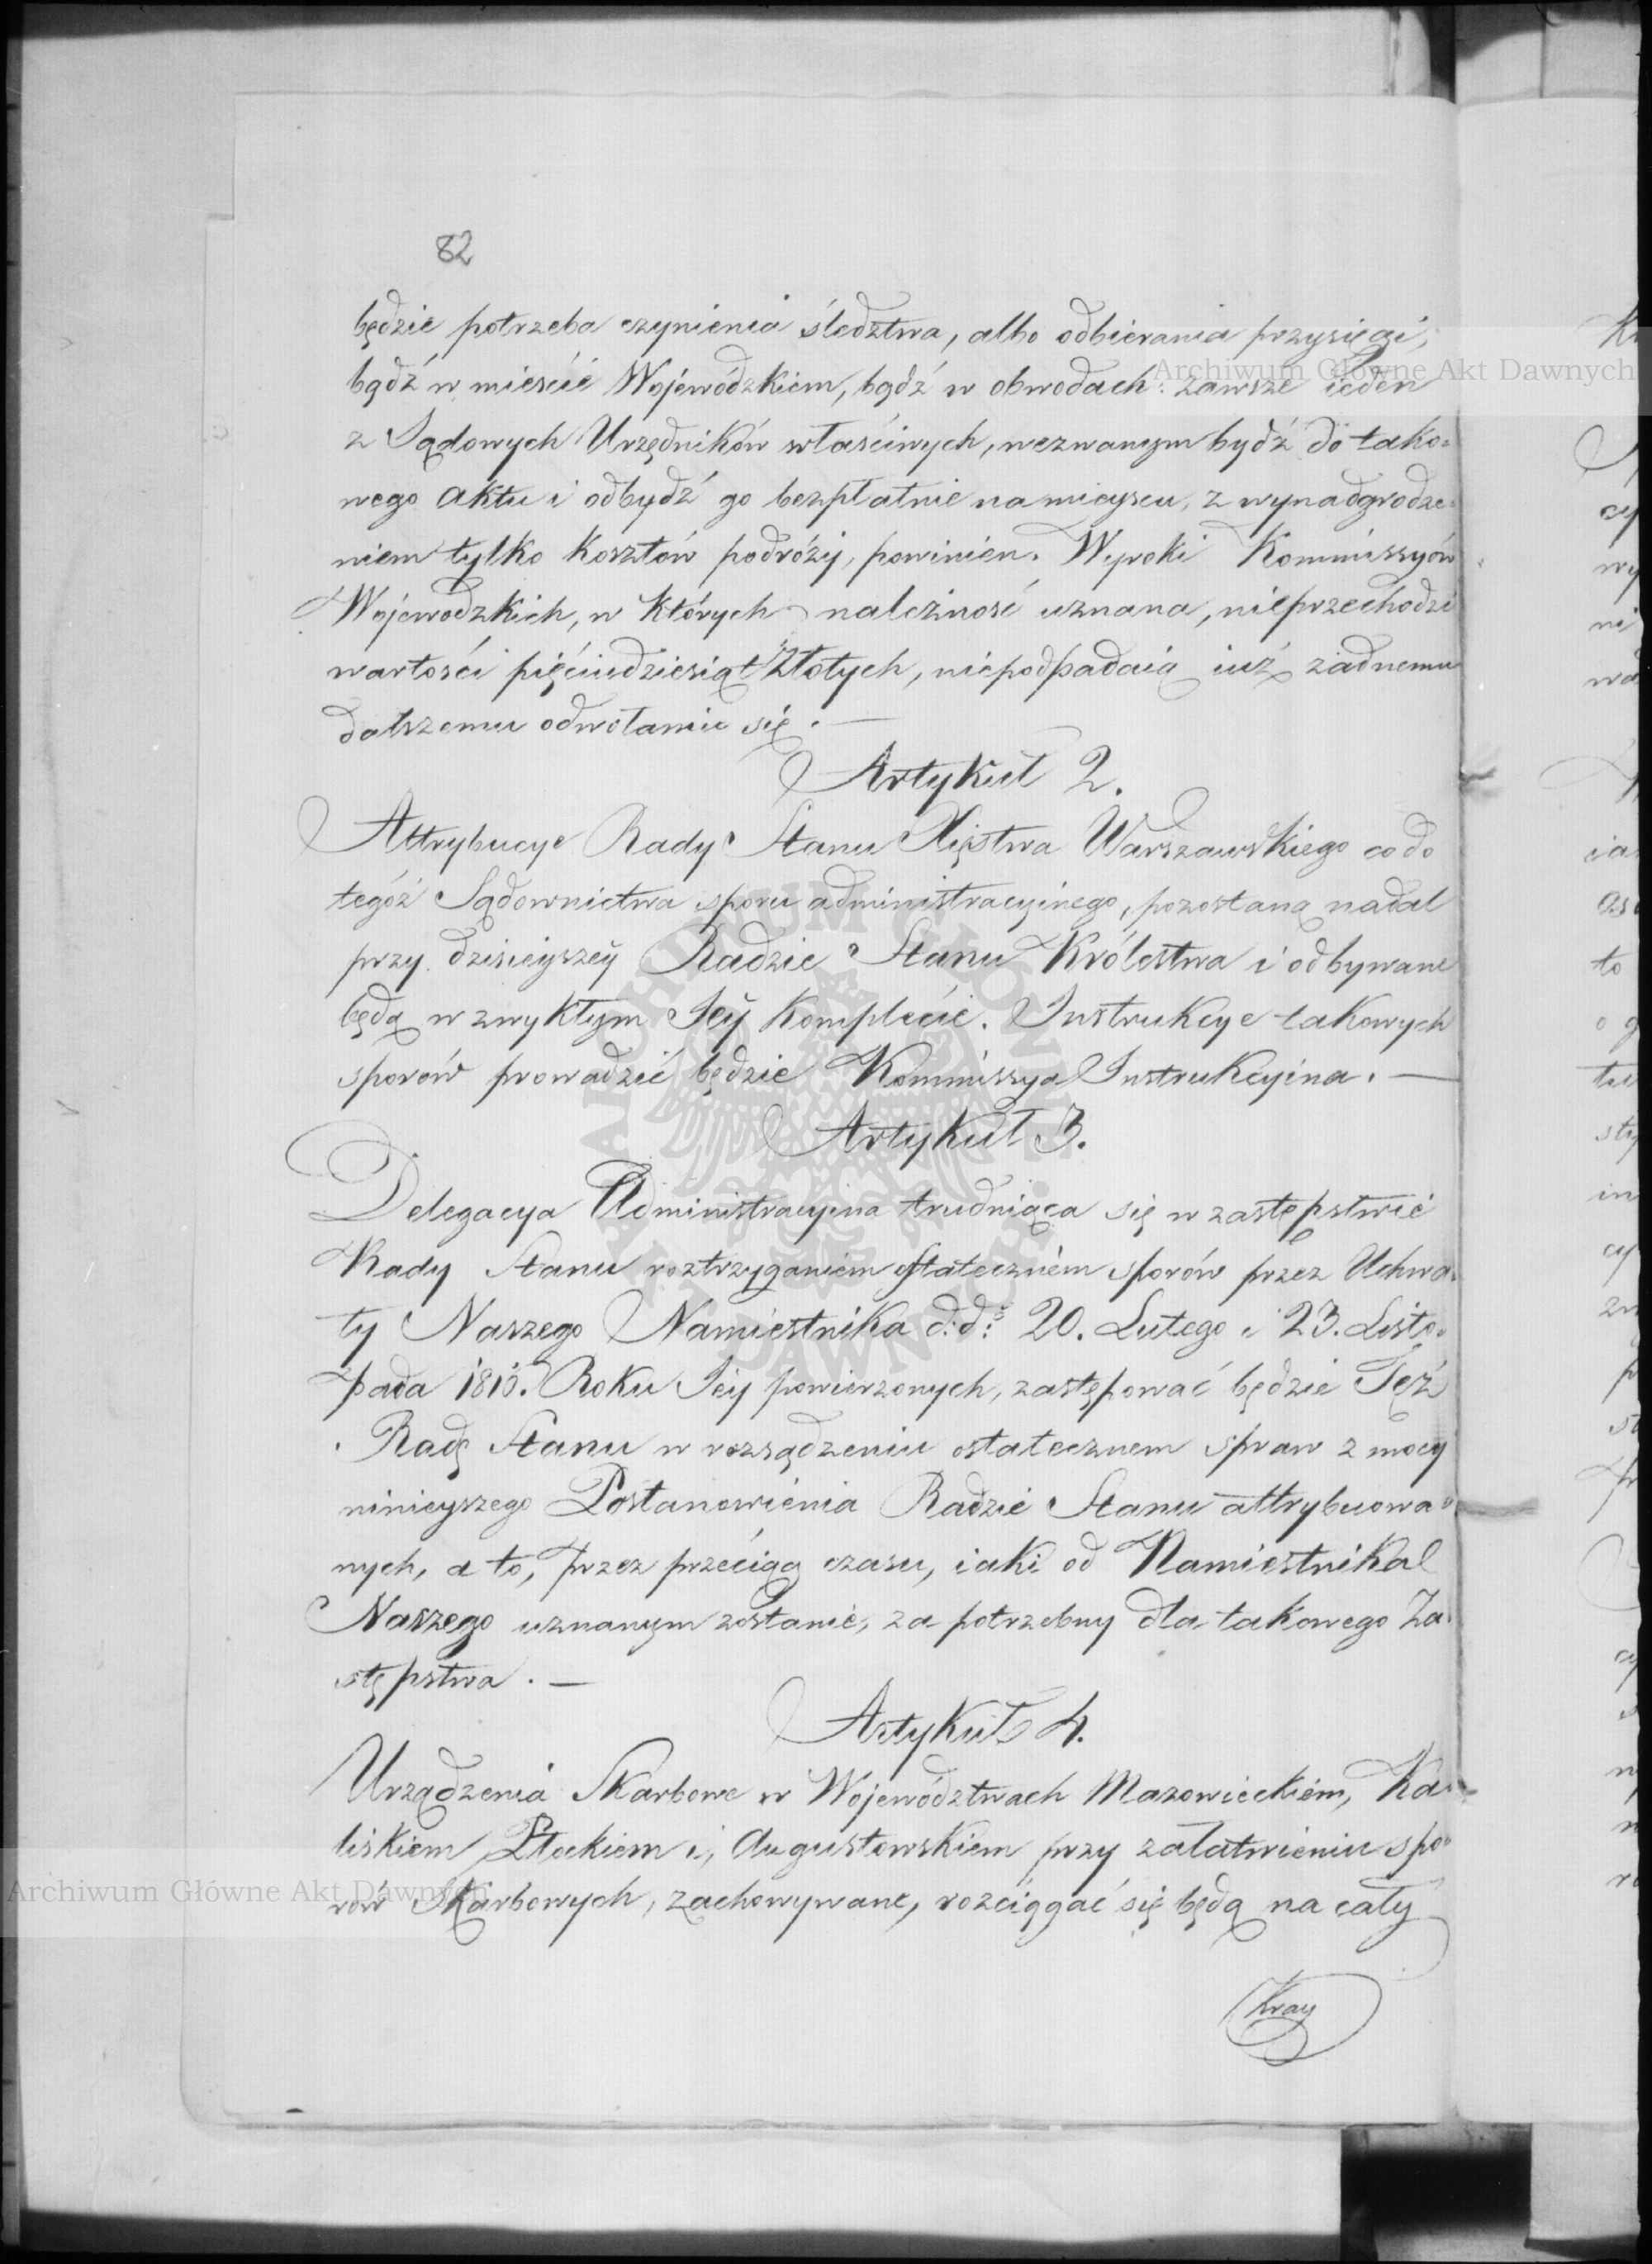 82
będzie potrzeba czynienia śledztwa, albo odbierania przysięgi,
bądź w mieście Wojewódzkiem, bądź w obwodach: zawsze ieden
z Sądowych Urzędników właściwych, wezwanym bydź do tako=
wego aktu i odbydź go bezpłatnie na mieyscu, z wynadgrodze=
niem tylko kosztów podróży, powinien. Wyroki Kommissyów
Wojewodzkich, w których należność uznana, nieprzechodzi
wartości pięćiudziesiąt Złotych, niepodpadaią iuż żadnemu
dalszemu odwołaniu się. —
Artykuł 2.
Attrybucye Rady Stanu Xięstwa Warszawskiego co do
tegóż Sądownictwa sporu administracyinego, pozostaną nadal
przy dzisieyszey Radzie Stanu Królestwa i odbywane
będą w zwykłym Jey Komplecie. Instrukcye takowych
sporów prowadzić będzie Kommissya Instrukcyina. —
Artykuł 3.
Delegacya Administracyina trudniąca się w zastępstwie
Rady Stanu roztrzyganiem ostateczném sporów przez Uchwa=
ły Naszego Namiestnika d: d: 20. Lutego i 23. Listo=
pada 1816. Roku Jey powierzonych, zastępować będzie Też
Radę Stanu w rozsądzeniu ostatecznem spraw z mocy
ninieyszego Postanowienia Radzie Stanu attrybuowa=
nych, a to, przez przeciąg czasu, iaki od Namiestnika
Naszego uznanym zostanie, za potrzebny dla takowego Za=
stępstwa. —
Artykuł 4.
Urządzenia Skarbowe w Województwach Mazowieckiem, Ka=
liskiem Płockiem i, Augustowskiem przy załatwieniu spo=
rów Skarbowych, zachowywane, rozciągać się będą na cały
Kray
Archiwum Główne Akt Dawnych
Archiwum Główne Akt Dawnych
ARCHIWUM GŁÓWNE AKT DAWNYCH